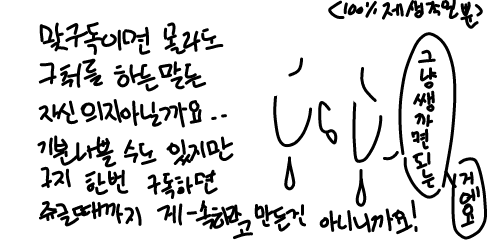 <100% 제 생각일 뿐>
맞구독이면 몰라도
구취를 하든말든
자신의지아닐까요..
기분나쁠 수도 있지만
굳이 한번 구독하면
쥬글때까지 계-속하라고 만든건 아니니까요!
그냥쌩까면되는
거에요